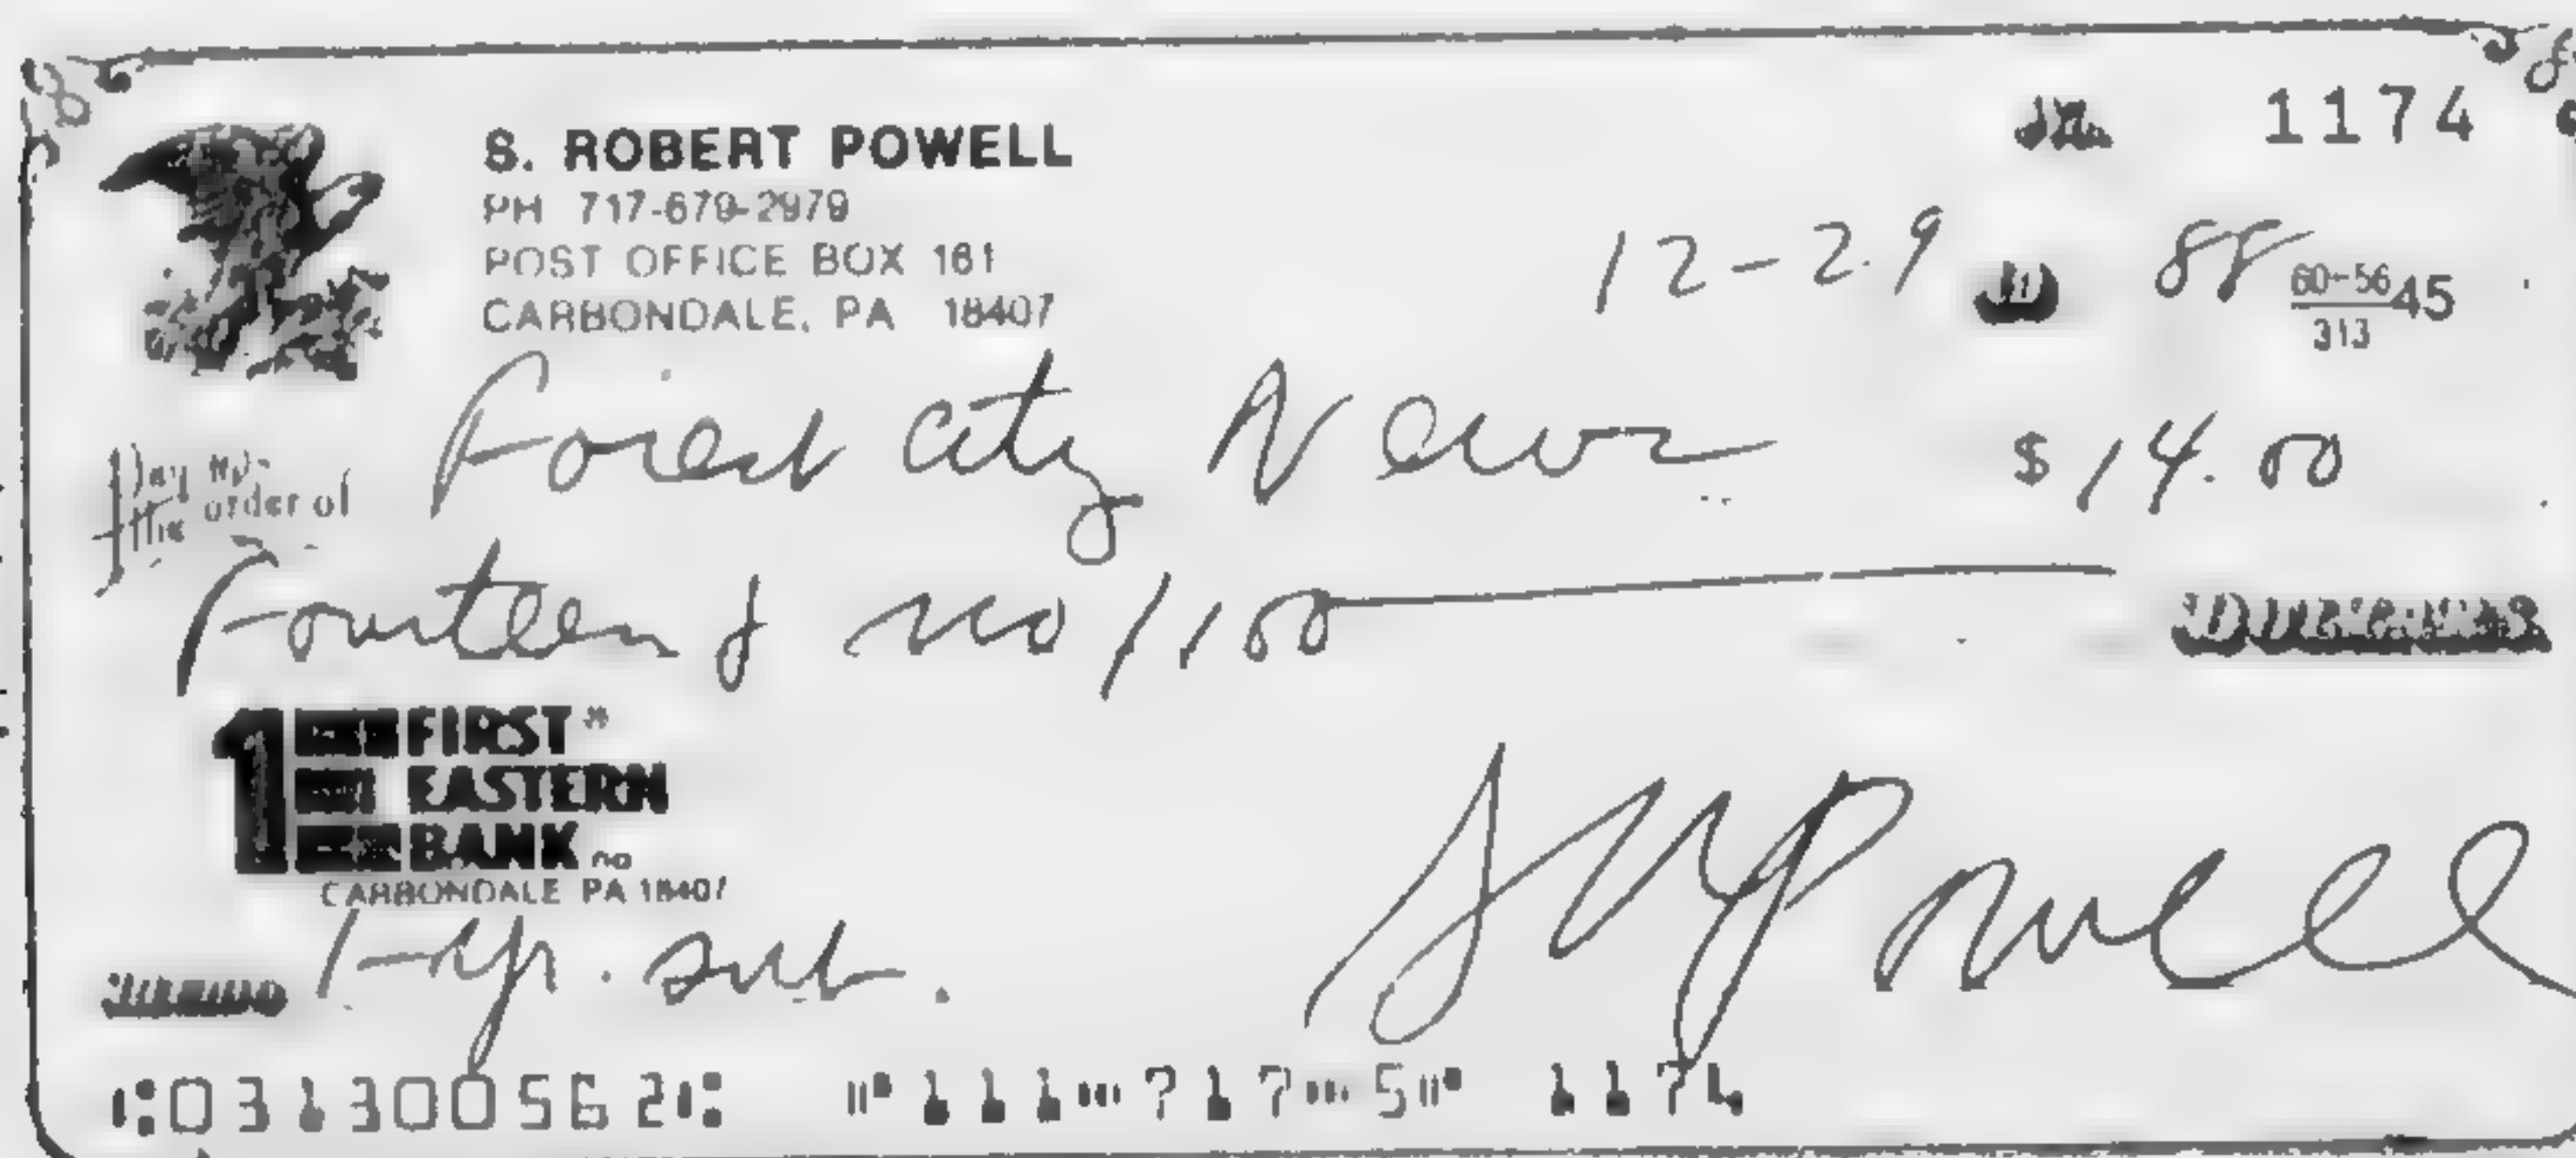 S. ROBERT POWELL
1174
PH 717-679-2979
POST OFFICE BOX 161
CARBONDALE, PA 18407
12-29 88
60-5645
313
Pay to
the order of Forest City News $ 14.00
Fourteen & no/100
FIRST
EASTERN
BANK na
CARBONDALE PA 18407
1-yr. sub. S R Powell
031300562 111 717 5 1174